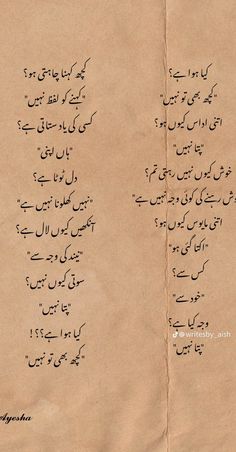 کیا ہوا ہے؟
"کچھ بھی تو نہیں"
اتنی اداس کیوں ہو؟
"پتا نہیں"
خوش کیوں نہیں رہتی تم؟
وش رہنے کی کوئی وجہ نہیں ہے"
اتنی مایوس کیوں ہو؟
"اکتا گئی ہو"
کس سے؟
"خود سے"
وجہ کیا ہے؟
@writesby_aish
"پتا نہیں"
کچھ کہنا چاہتی ہو؟
"کہنے کو لفظ نہیں"
کسی کی یاد ستاتی ہے؟
"ہاں اپنی"
دل ٹوٹا ہے؟
"نہیں کھلونا نہیں ہے"
آنکھیں کیوں لال ہے؟
"نیند کی وجہ سے"
سوتی کیوں نہیں؟
"پتا نہیں"
کیا ہوا ہے؟؟!
"کچھ بھی تو نہیں"
Ayesha